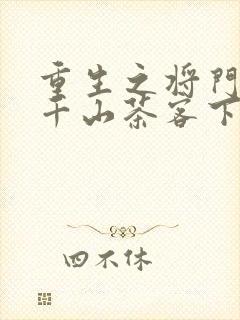 重生之将门
千山茶客下
四不休